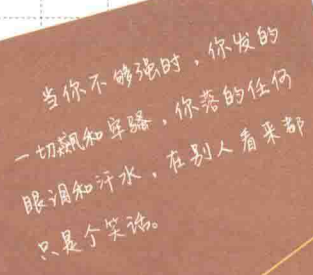 当你不够强时，你发的
一切飙和牢骚，你落的任何
眼泪和汗水，在别人看来都
只是个笑话。